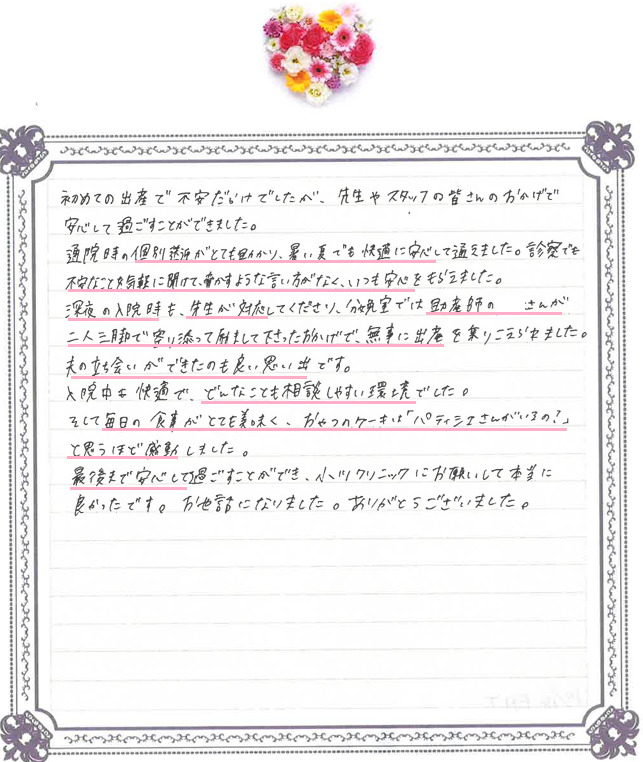 初めての出産で不安だらけでしたが、先生やスタッフの皆さんのおかげで
安心して過ごすことができました。
通院時の個別送迎がとても助かり、暑い夏でも快適に安心して通えました。診察でも
不安なことを気軽に聞けて、脅かすような言い方がなく、いつも安心をもらえました。
深夜の入院時も、先生が対応してくださり、分娩室では助産師の さんが
二人三脚で寄り添って励まして下さったおかげで、無事に出産を乗りこえられました。
夫の立ち会いができたのも良い思い出です。
入院中は快適で、どんなことも相談しやすい環境でした。
そして毎日の食事がとても美味く、おやつのケーキは「パティシエさんがいるの?」
と思うほど感動しました。
最後まで安心して過ごすことができ、小川クリニックにお願いして本当に
良かったです。お世話になりました。ありがとうございました。